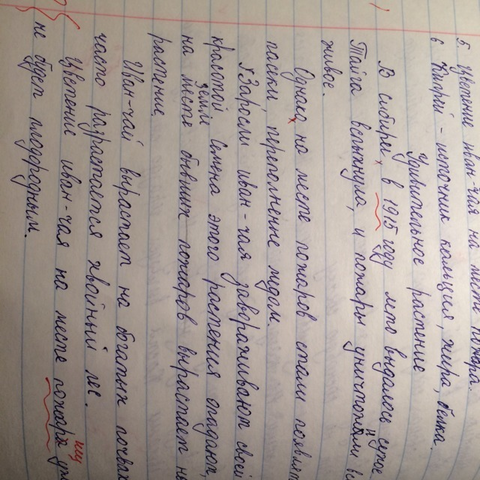 5. Цветение иван-чая на месте пожара.
6. Кипрей - источник кальция, жира, белка.
Удивительное растение
В сибири в 1915 году лето выдалось сухое
Тайга вспыхнула, и пожары уничтожили вс
живое.
Однако на месте пожаров стали появлят
пасеки, переполненные мёдом.
Заросли иван-чая завораживают своей
красотой. Семена этого растения опадают,
на месте бывших пожаров вырастает но
растение.
Иван-чай вырастает на богатых почвах
часто разрастается хвойный лес.
Цветение иван-чая на месте пожара
не будет плодородным.